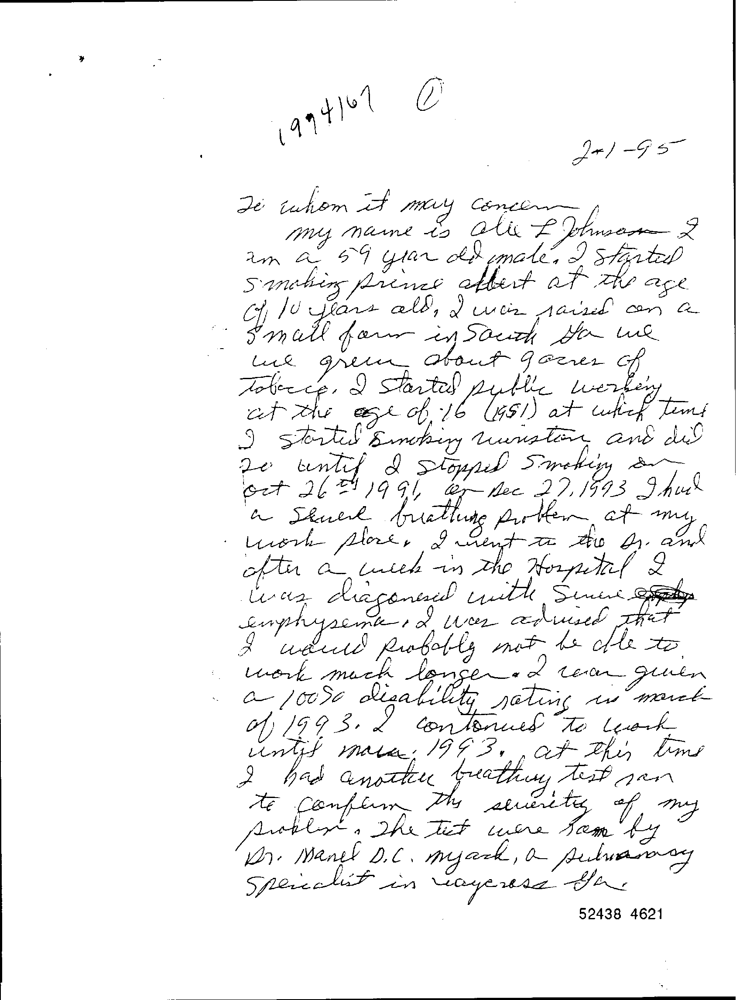 1994167 ①
2-1-95
To whom it may concern
my name is L Johnson I
am a 59 year old male. I started
smoking prince albert at the age
of 10 years old, I was raised on a
small farm in South Ga we
we grew about 9 acres of
Tobacco. I started public working
at the age of 16 (1951) at which time
I started smoking winston and did
so until I stopped smoking on
oct 26th 1991, on Dec 27, 1993 I had
a severe breathing problem at my
work place, I went to the Dr. and
after a week in the Hospital I
was diagonesed with Severe
emphysema, I was advised that
I would probably not be able to
work much longer. I was given
a 100% disability rating in march
of 1993. I contonued to work
until 1993. at this time
I had another breathing test ran
to confirm the severity of my
problem. The test were ran by
Dr. Manel D.C. a
specialist in waycross Ga.
52438 4621